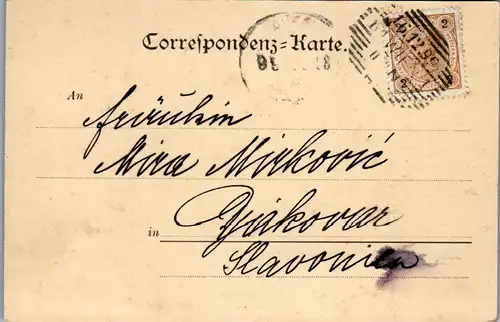 Correspondenz=Karte.
2
2
An Fräulein
Mira Mirković
in Djakovar
Slavonien